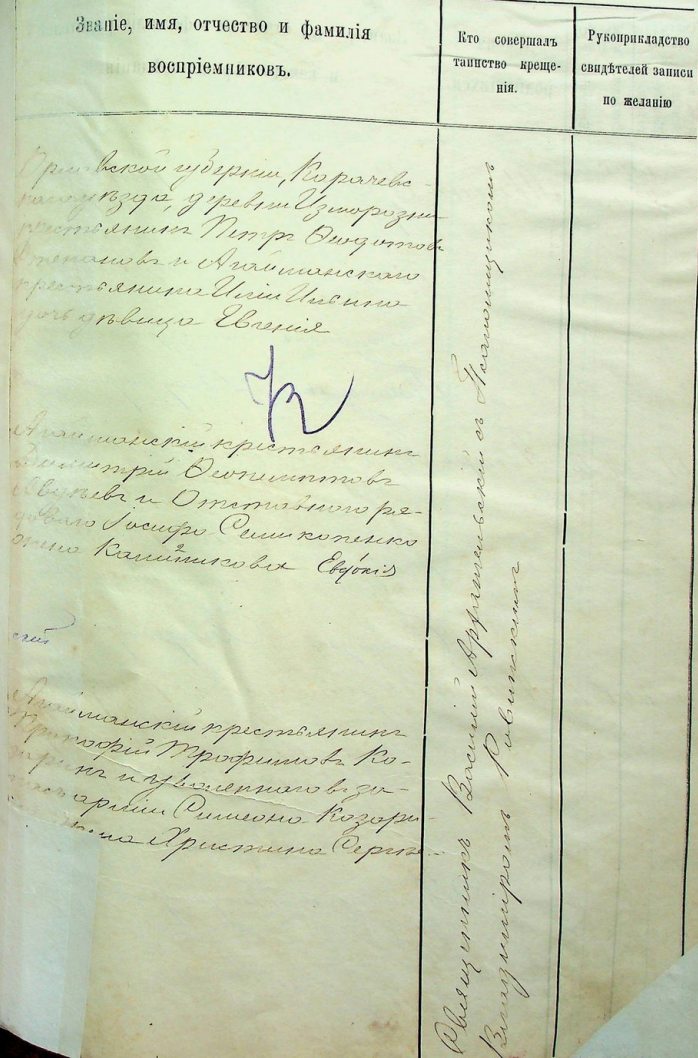 Званіе, имя, отчество и фамилія
воспріемниковъ.
Кто совершалъ
таинство креще-
нія.
Рукоприкладство
свидѣтелей записи
по желанію
губерніи, Карачевс-
каго уѣзда, деревни
крестьянинъ Петръ Ѳеодотовъ
Степановъ и Агайманскаго
крестьянина Иліи Ивина
дочь дѣвица Евгенія
Агайманскій крестьянинъ
Димитрій Ѳеопемптовъ
и Отставного ря-
доваго Іосифа Семикопенко
жена Евдокія
скій
Агайманскій крестьянинъ
Прокофій Трофимовъ Ко-
и уволеннаго въ за-
арміи Симеона Козари-
жена Христина Серге-
Священникъ Василій Архангельскій съ Псаломщикомъ
Владиміромъ